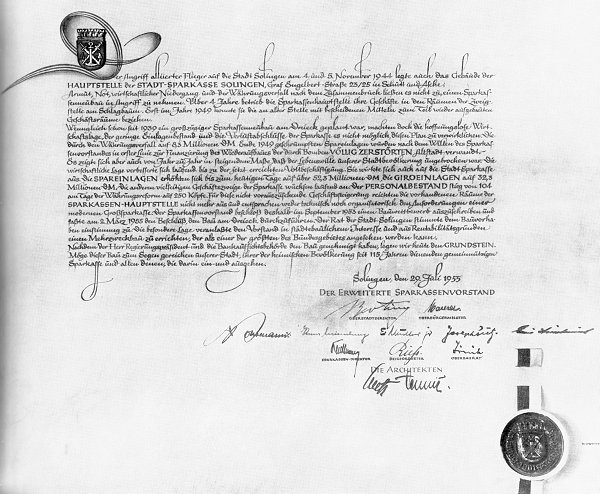 er Angriff alliierter Flieger auf die Stadt Solingen am 4. und 5. November 1944 legte auch das Gebäude der
HAUPTSTELLE der STADT-SPARKASSE SOLINGEN, Graf Engelbert-Straße 23/25 in Schutt und Asche.
Armut, Not, wirtschaftlicher Niedergang und der Währungsverfall nach dem Zusammenbruch ließen es nicht zu, einen Spar-
kassenneubau in Angriff zu nehmen. Über 4 Jahre betrieb die Sparkassenhauptstelle ihre Geschäfte in den Räumen der Zweig-
stelle am Schlagbaum. Erst im Jahre 1949 konnte sie an alter Stelle mit bescheidenen Mitteln zum Teil wieder aufgebauten
Geschäftsräume beziehen.
Wenngleich schon seit 1939 ein großzügiger Sparkassenneubau am Dreieck geplant war, machten doch die hoffnungslose Wirt-
schaftslage, der geringe Einlagenbestand und die Verlustabschlüsse der Sparkasse es nicht möglich, diesen Plan zu verwirklichen. Die
durch den Währungsverfall auf 8,5 Millionen DM Ende 1949 geschrumpften Spareinlagen wurden nach dem Willen des Sparkas-
senvorstandes in erster Linie zur Finanzierung des Wiederaufbaues der durch Bomben VÖLLIG ZERSTÖRTEN Altstadt verwandt.
Es zeigte sich aber auch von Jahr zu Jahr in steigendem Maße, daß der Lebenswille unserer Stadtbevölkerung ungebrochen war. Die
wirtschaftliche Lage verbesserte sich laufend bis zu der jetzt erreichten Vollbeschäftigung. Sie wirkte sich auch auf die Stadt-Sparkasse
aus. Die SPAREINLAGEN erhöhten sich bis zum heutigen Tage auf über 52,3 Millionen DM, die GIROEINLAGEN auf 32,2
Millionen DM, die anderen vielseitigen Geschäftszweige der Sparkasse wuchsen laufend an. Der PERSONALBESTAND stieg von 104
am Tage der Währungsreform auf 250 Köpfe. Für diese nicht vorauszusehende Geschäftssteigerung reichten die vorhandenen Räume der
SPARKASSEN-HAUPTSTELLE nicht mehr aus und entsprachen weder technisch noch organisatorisch den Anforderungen einer
modernen Großsparkasse. Der Sparkassenvorstand beschloß deshalb im September 1953 einen Bauwettbewerb auszuschreiben und
faßte am 2. März 1955 den Beschluß, den Bau am Dreieck durchzuführen. Der Rat der Stadt Solingen stimmte dem Bauvorha-
ben einstimmig zu. Die besondere Lage veranlaßte den Vorstand in städtebaulichem Interesse und aus Rentabilitätsgründen
einen Mehrzweckbau zu errichten, der als einer der größten des Bundesgebietes angesehen werden kann.
Nachdem der Herr Regierungspräsident und die Bauaufsichtsbehörde den Bau genehmigt haben, legen wir heute den GRUNDSTEIN.
Möge dieser Bau zum Segen gereichen unserer Stadt, ihrer der heimischen Bevölkerung seit 115 Jahren dienenden gemeinnützigen
Sparkasse und allen denen, die darin ein- und ausgehen.
Solingen, den 29. Juli 1955
DER ERWEITERTE SPARKASSENVORSTAND
OBERSTADTDIREKTOR OBERBÜRGERMEISTER
SPARKASSEN-DIREKTOR BEIGEORDNETER OBERBAURAT
DIE ARCHITEKTEN